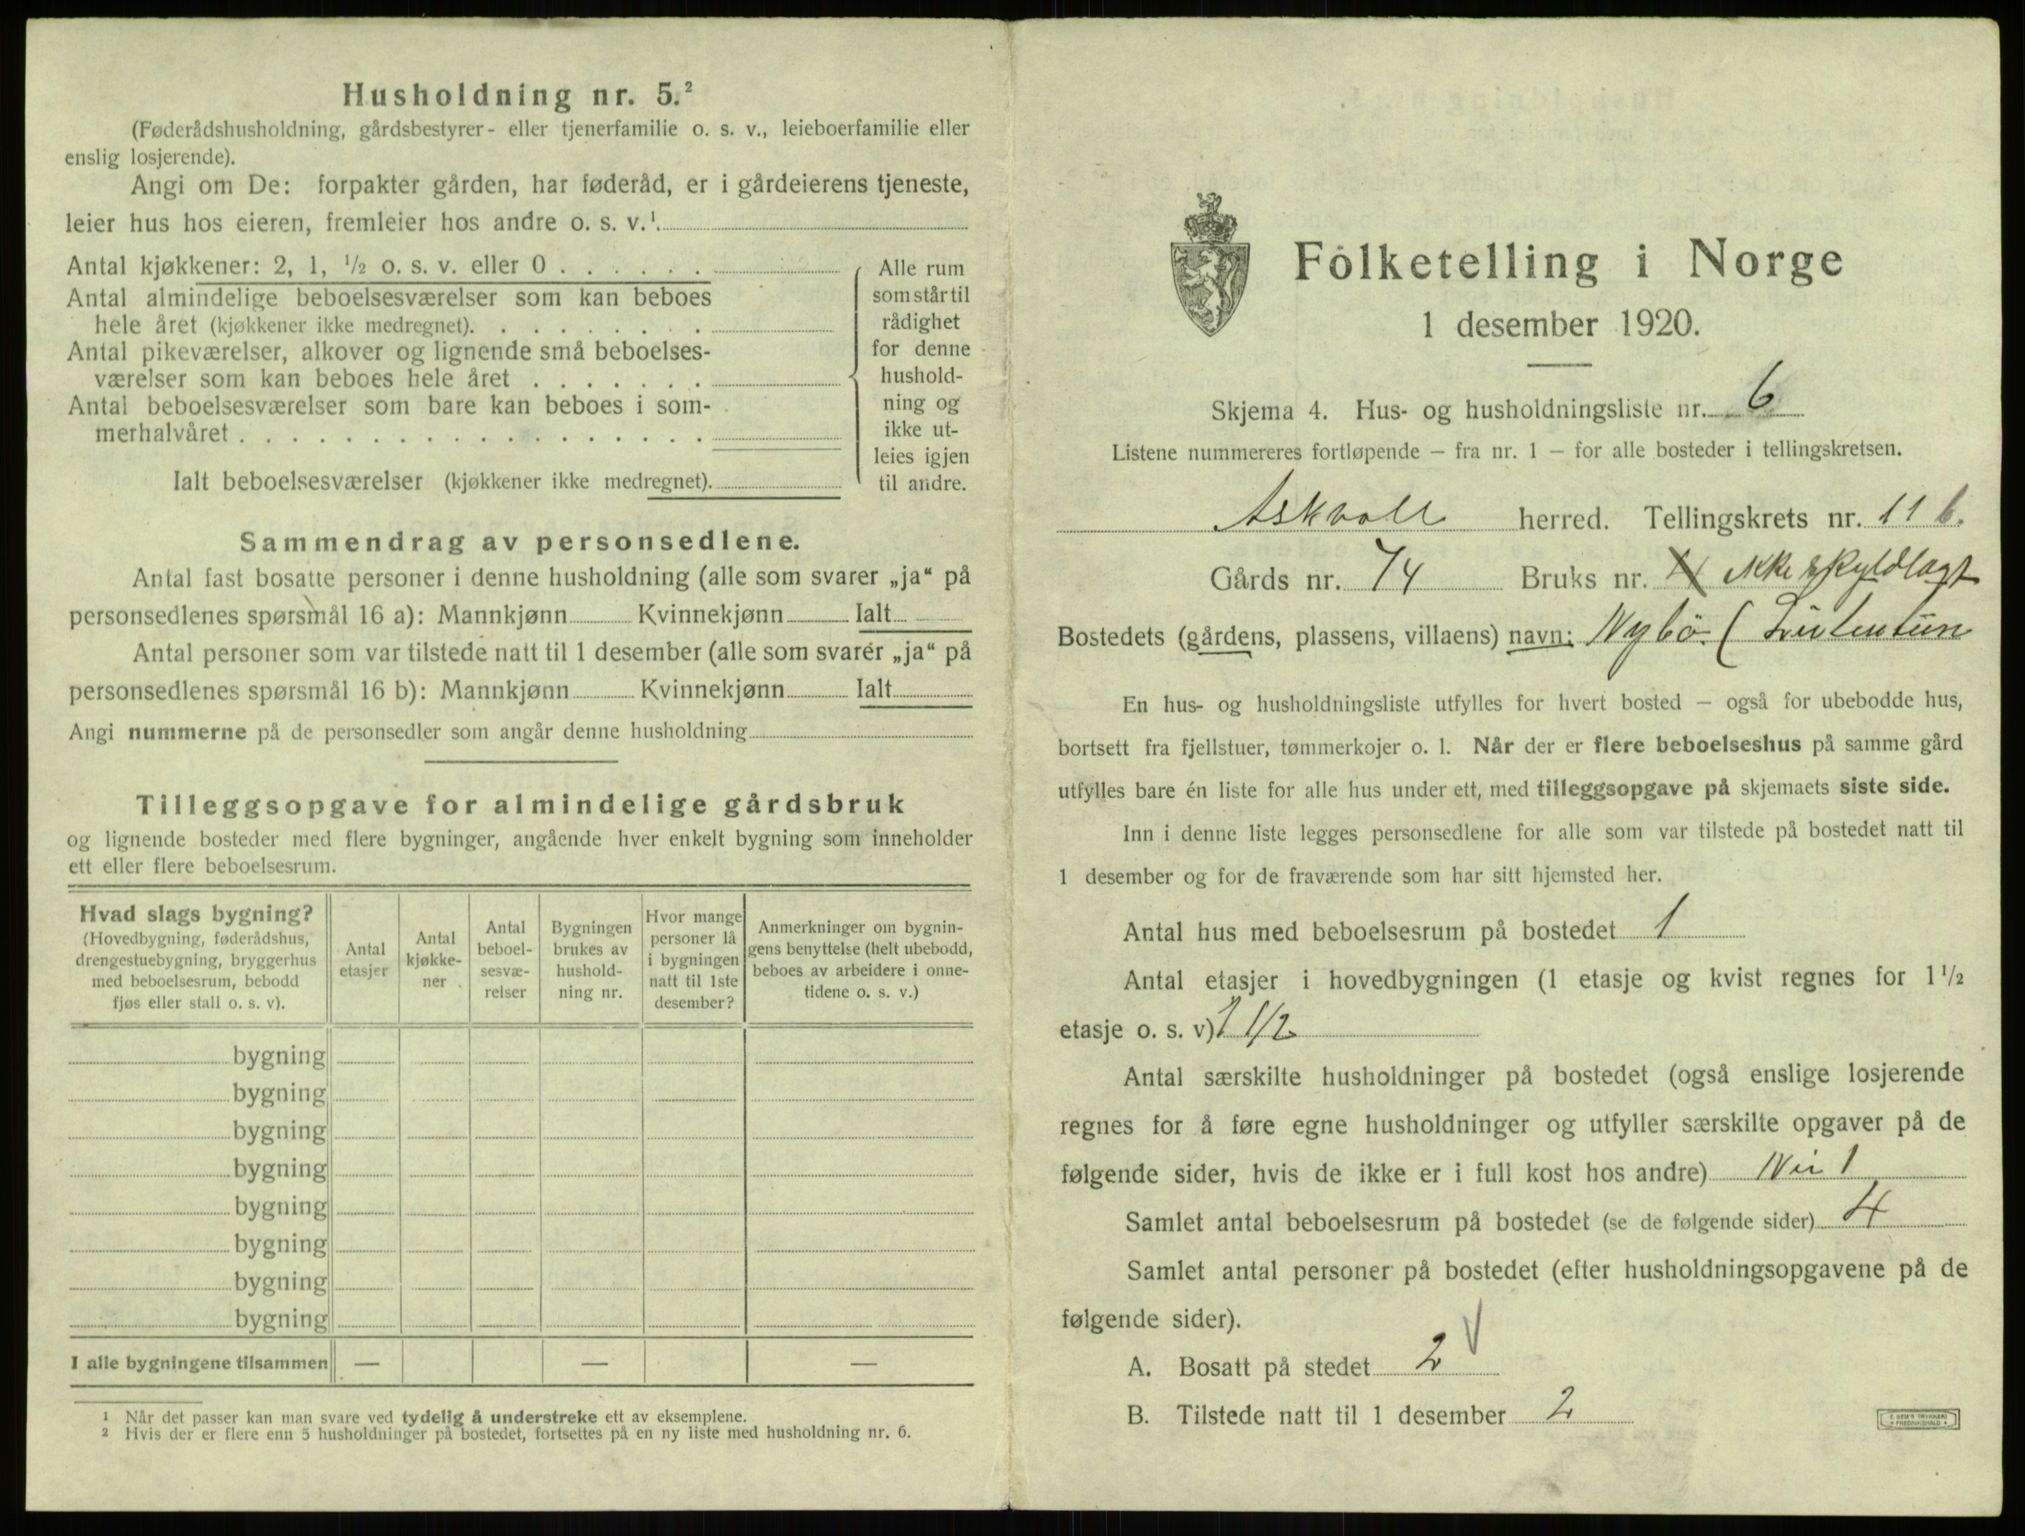 Husholdning nr. 5.²
(Føderådshusholdning, gårdsbestyrer- eller tjenerfamilie o. s. v., leieboerfamilie eller
enslig losjerende).
Angi om De: forpakter gården, har føderåd, er i gårdeierens tjeneste,
leier hus hos eieren, fremleier hos andre o. s. v.¹.
Antal kjøkkener: 2, 1, ½ o. s. v. eller 0 . . . . . .
Antal almindelige beboelsesværelser som kan beboes
hele året (kjøkkener ikke medregnet). . . . . . . . .
Antal pikeværelser, alkover og lignende små beboelses-
værelser som kan beboes hele året . . . . . . .
Antal beboelsesværelser som bare kan beboes i som-
merhalvåret . . . . . . . . . . . . . . . . . .
Ialt beboelsesværelser (kjøkkener ikke medregnet).
Alle rum
som står til
rådighet
for denne
hushold-
ning og
ikke ut-
leies igjen
til andre.
Sammendrag av personsedlene.
Antal fast bosatte personer i denne husholdning (alle som svarer „ja“ på
personsedlenes spørsmål 16 a): Mannkjønn Kvinnekjønn Ialt
Antal personer som var tilstede natt til 1 desember (alle som svarer „ja“ på
personsedlenes spørsmål 16 b): Mannkjønn Kvinnekjønn Ialt
Angi nummerne på de personsedler som angår denne husholdning
Tilleggsopgave for almindelige gårdsbruk
og lignende bosteder med flere bygninger, angående hver enkelt bygning som inneholder
ett eller flere beboelsesrum.
Hvad slags bygning?
(Hovedbygning, føderådshus,
drengestuebygning, bryggerhus
med beboelsesrum, bebodd
fjøs eller stall o. s. v).
Antal
etasjer
Antal
kjøkke-
ner
Antal
beboel-
sesvæ-
relser
Bygningen
brukes av
hushold-
ning nr.
Hvor mange
personer lå
i bygningen
natt til 1ste
desember?
Anmerkninger om bygnin-
gens benyttelse (helt ubebodd,
beboes av arbeidere i onne-
tidene o. s. v.)
bygning
bygning
bygning
bygning
bygning
bygning
bygning
bygning
I alle bygningene tilsammen — — —
¹ Når det passer kan man svare ved tydelig å understreke ett av eksemplene.
² Hvis der er flere enn 5 husholdninger på bostedet, fortsettes på en ny liste med husholdning nr. 6.
Folketelling i Norge
1 desember 1920.
Skjema 4. Hus- og husholdningsliste nr. 6
Listene nummereres fortløpende – fra nr. 1 – for alle bosteder i tellingskretsen.
Askvoll herred. Tellingskrets nr. 11 b.
Gårds nr. 74 Bruks nr. ikke skyldlagt
Bostedets (gårdens, plassens, villaens) navn: Nybö (
En hus- og husholdningsliste utfylles for hvert bosted – også for ubebodde hus,
bortsett fra fjellstuer, tømmerkojer o. l. Når der er flere beboelseshus på samme gård
utfylles bare én liste for alle hus under ett, med tilleggsopgave på skjemaets siste side.
Inn i denne liste legges personsedlene for alle som var tilstede på bostedet natt til
1 desember og for de fraværende som har sitt hjemsted her.
Antal hus med beboelsesrum på bostedet 1
Antal etasjer i hovedbygningen (1 etasje og kvist regnes for 1 ½
etasje o. s. v) 1 1/2
Antal særskilte husholdninger på bostedet (også enslige losjerende
regnes for å føre egne husholdninger og utfyller særskilte opgaver på de
følgende sider, hvis de ikke er i full kost hos andre) 1
Samlet antal beboelsesrum på bostedet (se de følgende sider) 4
Samlet antal personer på bostedet (efter husholdningsopgavene på de
følgende sider).
A. Bosatt på stedet 2
B. Tilstede natt til 1 desember 2